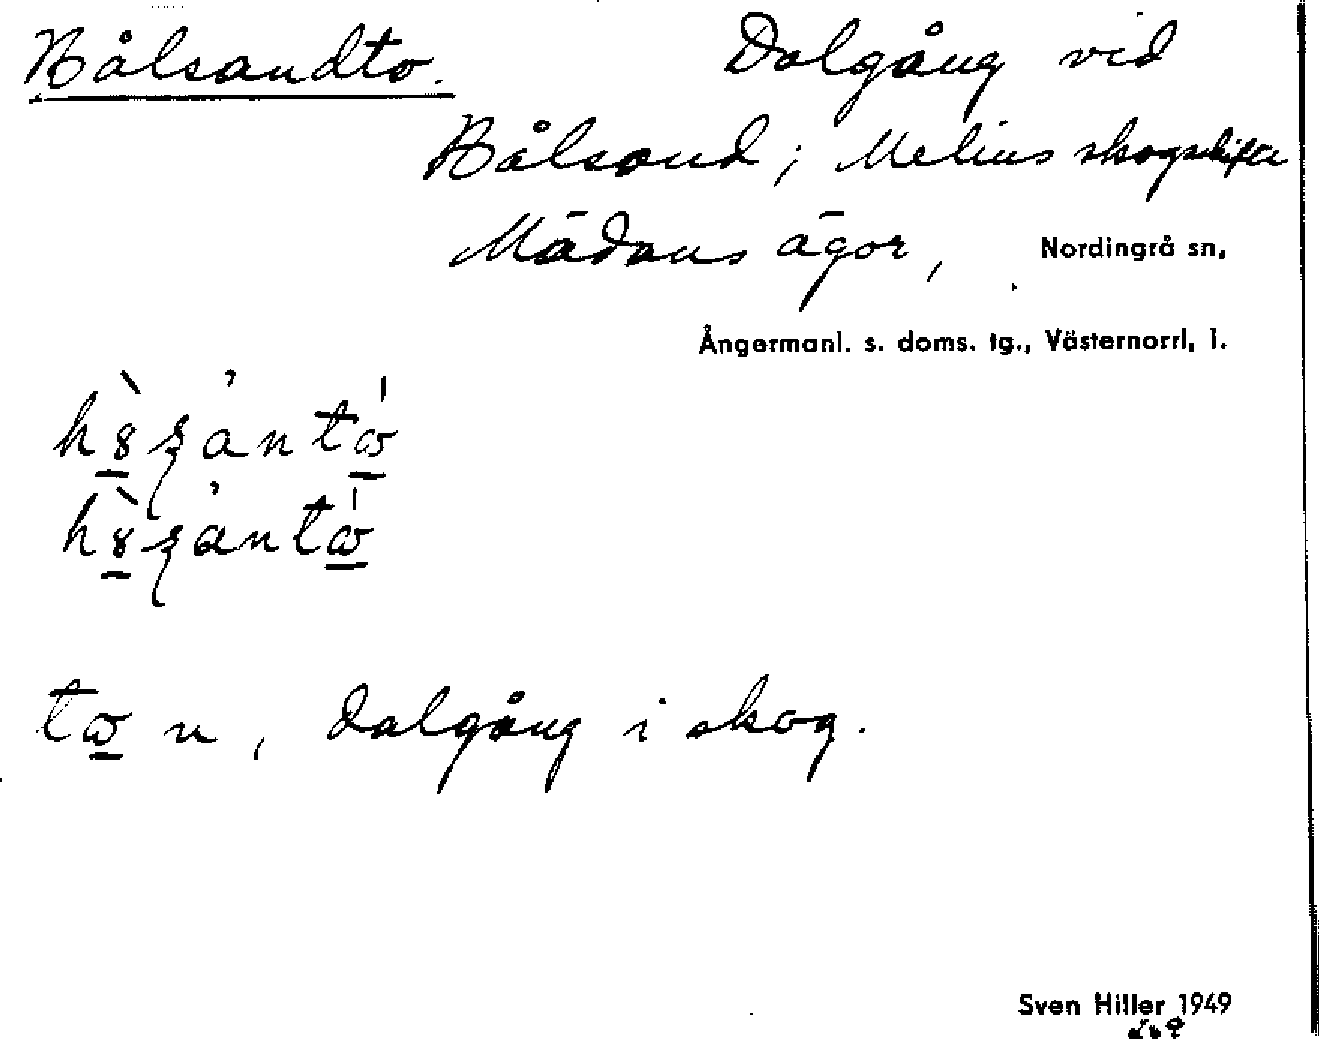 Hålsandto.
Dalgång vid
Hålsand; Melins skogsskifte
Mädans ägor, Nordingrå sn,
Ångermanl. s. doms. tg., Västernorrl, l.
n, dalgång i skog.
Sven Hiller 1949